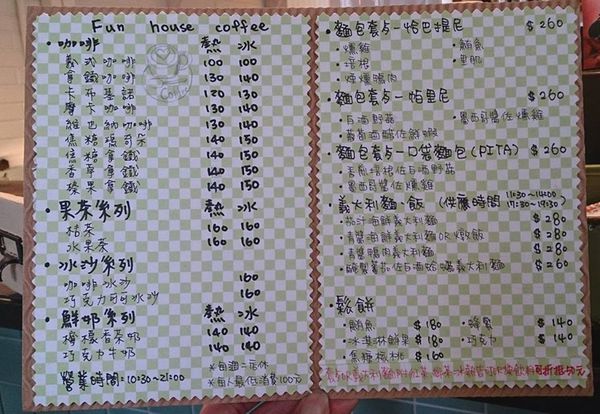 Fun house coffee
·咖啡 熱 冰
美式咖啡 100 100
拿鐵咖啡 130 140
卡布基諾 120 130
摩卡咖啡 130 140
維也納咖啡 130 140
焦糖瑪奇朵 140 150
焦糖拿鐵 140 150
香草拿鐵 140 150
榛果拿鐵 140 150
·果茶系列 熱 冰
桔茶 160 160
水果茶 160 160
·冰沙系列
咖啡冰沙 160
巧克力可可冰沙 160
·鮮奶系列 熱 冰
檸檬香茶 140 140
巧克力牛奶 140 140
營業時間:10:30~21:00
*每週一店休
*每人最低消費100元
·麵包套餐-恰巴提尼 $260
·燻雞 ·鮪魚
·培根 ·里肌
·煙燻鴨肉
·麵包套餐-帕里尼 $260
·白酒野菇 ·墨西哥醬佐燻雞
佐鮮蝦
麵包套餐-口袋麵包(PITA) $260
培根佐白酒野菇
·墨西哥醬佐燻雞
·義大利麵·飯 (供應時間 11:30~14:00 17:30~19:30)
·茄汁海鮮義大利麵 $280
·青醬海鮮義大利麵OR燉飯 $280
·青醬鴨肉義大利麵 $280
番茄佐白酒蛤蠣義大利麵 $260
·鬆餅
·鮪魚 $180 ·蜂蜜 $140
·冰淇淋鮮果 $180 ·巧克力 $140
·焦糖核桃 $160